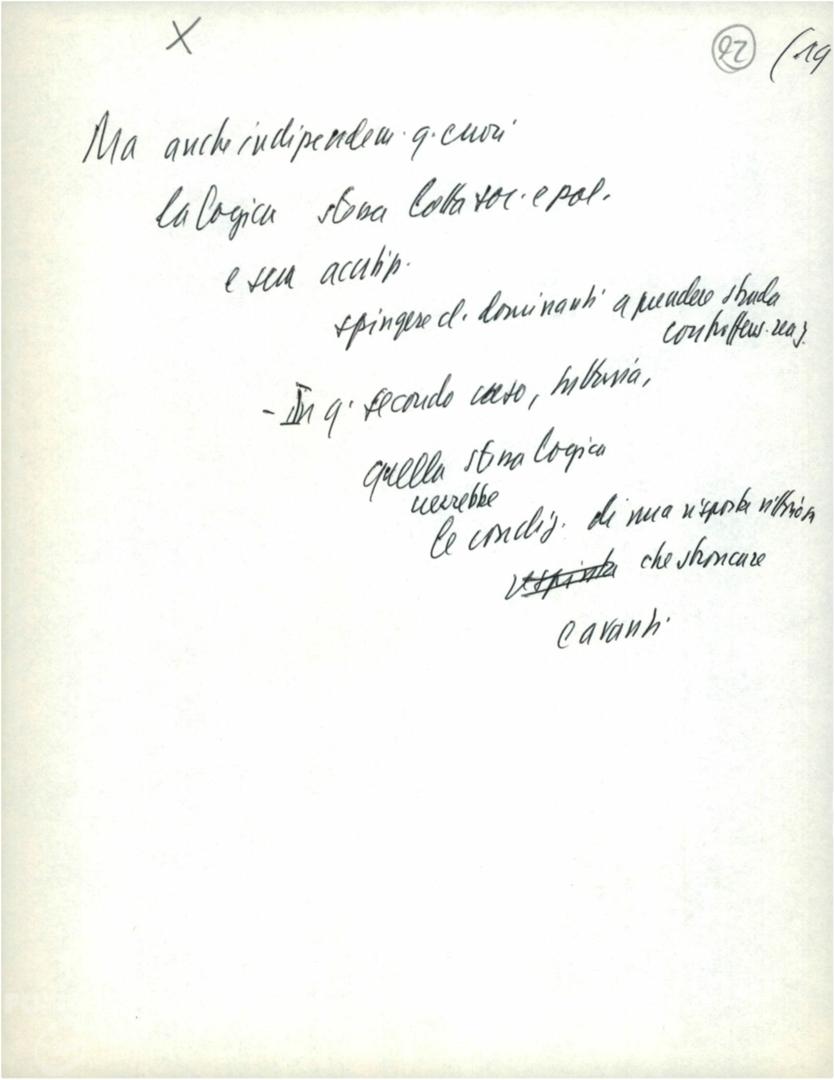 X 22 (19
Ma anche indipendem. q. errori
la logica stessa lotta soc. e pol.
e sua acutiz.
spingere cl. dominanti a prendere strada
controffens. reaz.
- In q. secondo caso, tuttavia,
quella stessa logica
creerebbe
le condiz. di una risposta vittoriosa
che stroncare
e avanti.